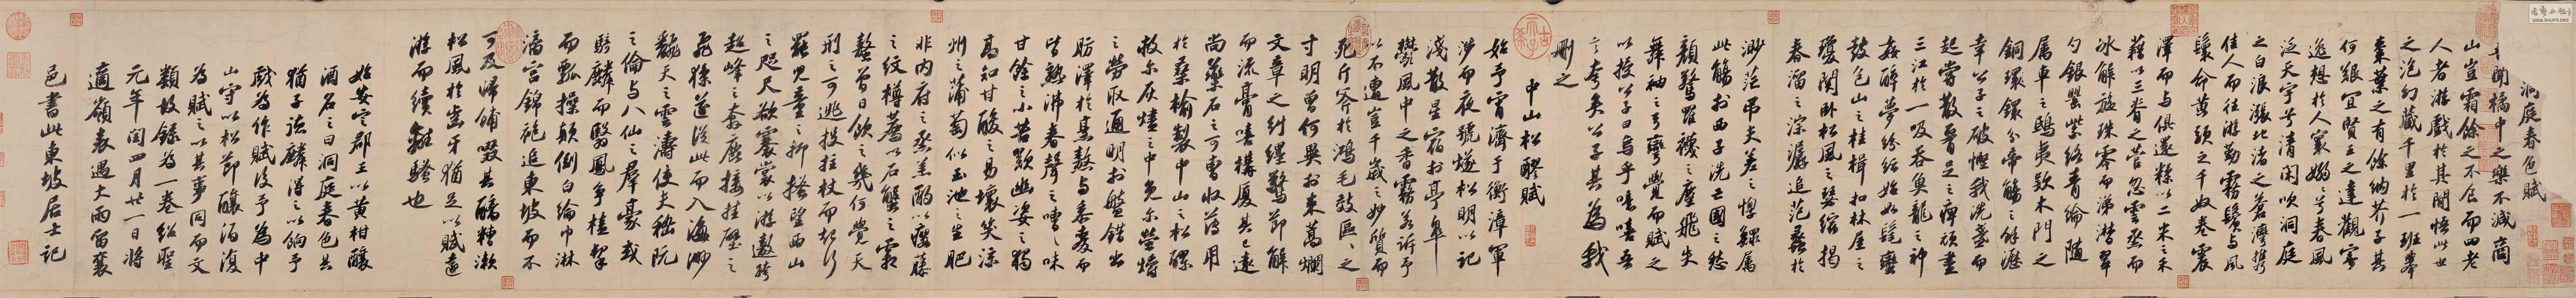 洞庭春色賦
吾聞橘中之樂不減商
山豈霜餘之不食而四老
人者游戲於其間悟此世
之泡幻藏千里於一班舉
棗葉之有餘納芥子其
何艱宜賢王之達觀寄
逸想於人寰嫋々兮春風
泛天宇兮清閑吹洞庭
之白浪漲北渚之蒼灣攜
佳人而往游勤霧鬢与風
鬟命黃頭之千奴卷震
澤而与俱還糅以二米之禾
藉以三脊之菅忽雲烝而
冰解旋珠零而涕潸翠
勺銀罌紫絡青綸隨
屬車之鴟夷款木門之
銅環分帝觴之餘瀝
幸公子之破慳我洗盞而
起嘗散腰足之痹頑盡
三江於一吸吞魚龍之神
姦醉夢紛紜始如髦蠻
鼓包山之桂楫扣林屋之
瓊關臥松風之瑟縮揭
春溜之淙潺追范蠡於
渺茫弔夫差之惸鰥屬
此觴於西子洗亡國之愁
顏驚羅襪之塵飛失
舞袖之弓彎覺而賦之
以授公子曰烏乎噫嘻吾
言夸矣公子其為我
刪之
中山松醪賦
始予宵濟于衡漳軍
涉而夜號燧松明以記
淺散星宿於亭皋
鬱風中之香霧若訴予
以不遭豈千歲之妙質而
死斤斧於鴻毛效區々之
寸明曾何異於束蒿爛
文章之糾纆驚節解
而流膏嘻構廈其已遠
尚藥石之可曹收薄用
於桑榆製中山之松醪
救尒灰燼之中免尒螢爝
之勞取通明於盤錯出
肪澤於烹熬与黍麥而
皆熟沸舂聲之嘈々味
甘餘之小苦歎幽姿之獨
高知甘酸之易壞笑涼
州之蒲萄似玉池之生肥
非內府之烝羔酌以癭藤
之紋樽薦以石蟹之霜
螯曾日飲之幾何覺天
刑之可逃投拄杖而起行
罷兒童之抑搔望西山
之咫尺欲褰裳以游遨跨
超峰之奔鹿接挂壁之
飛猱遂從此而入海渺
翻天之雲濤使夫嵇阮
之倫与八仙之群豪或
騎麟而翳鳳爭榼挈
而瓢操顛倒白綸巾淋
漓宮錦袍追東坡而不
可及歸餔歠其醨糟漱
松風於齒牙猶足以賦遠
游而續離騷也
始安定郡王以黃柑釀
酒名之曰洞庭春色其
猶子德麟得之以餉予
戲為作賦後予為中
山守以松節釀酒復
為賦之以其事同而文
類故錄為一卷紹聖
元年閏四月廿一日將
適嶺表遇大雨留襄
邑書此東坡居士記